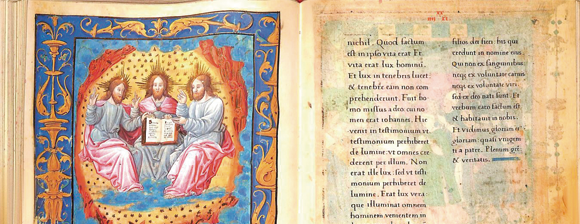 nichil. Quod factum
est in ipso vita erat. Et
vita erat lux homini.
Et lux in tenebris lucet
& tenebre eam non com
prehenderunt. Fuit ho
mo missus a deo cui no
men erat iohannes. Hic
venit in testimonium vt
testimonium perhiberet
de lumine. vt omnes cre
derent per illum. Non
erat ille lux. sed vt testi
monium perhiberet de
lumine. Erat lux vera
que illuminat omnem
hominem venientem in
filios dei fieri. his qui
credunt in nomine eius.
Qui non ex sanguinibus
neqz ex voluntate carnis
neqz ex voluntate viri
sed ex deo nati sunt. Et
verbum caro factum est
& habitauit in nobis.
Et vidimus gloriam
gloriam quasi vnigeni
ti a patre. Plenum
& veritatis.